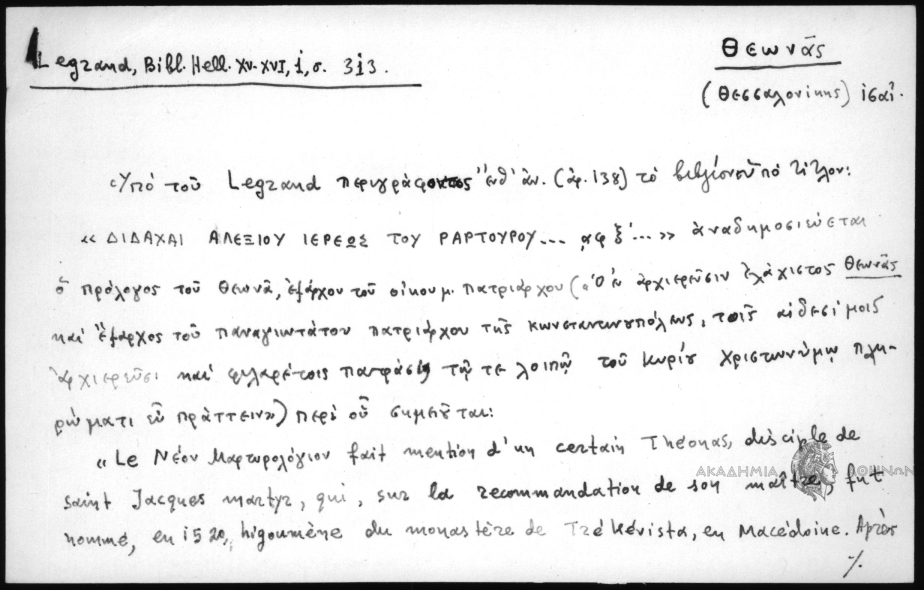 Legrand, Bibl. Hell. XV-XVI, i, σ. 313.
Θεωνᾶς
(Θεσσαλονίκης) ισαί.
Ὑπό τοῦ Legrand περιγράφοντος ἐνθ' ἀν. (ἀρ. 138) τό βιβλίον ὑπό τίτλον:
« ΔΙΔΑΧΑΙ ΑΛΕΞΙΟΥ ΙΕΡΕΩΣ ΤΟΥ ΡΑΡΤΟΥΡΟΥ... ͵αφξ'...» ἀναδημοσιεύεται
ὁ πρόλογος τοῦ Θεωνᾶ, ἐξάρχου τοῦ οἰκουμ. πατριάρχου («Ὁ ἐν ἀρχιερεῦσιν ἐλάχιστος Θεωνᾶς
καί ἔξαρχος τοῦ παναγιωτάτου πατριάρχου τῆς Κωνσταντινουπόλεως, τοῖς αἰδεσίμοις
ἀρχιερεῦσι καί φιλαρέτοις πᾶσι τῷ τε λοιπῷ τοῦ Κυρίου χριστωνύμῳ πλη-
ρώματι εὖ πράττειν») περί οὗ σημειοῦται:
« Le Νέον Μαρτυρολόγιον fait mention d'un certain Théonas, disciple de
saint Jacques martyr, qui, sur la recommandation de son maître, fut
nommé, en 1520, higoumène du monastère de Trékévista, en Macédoine. Après
ΑΚΑΔΗΜΙΑ ΑΘΗΝΩΝ
./.